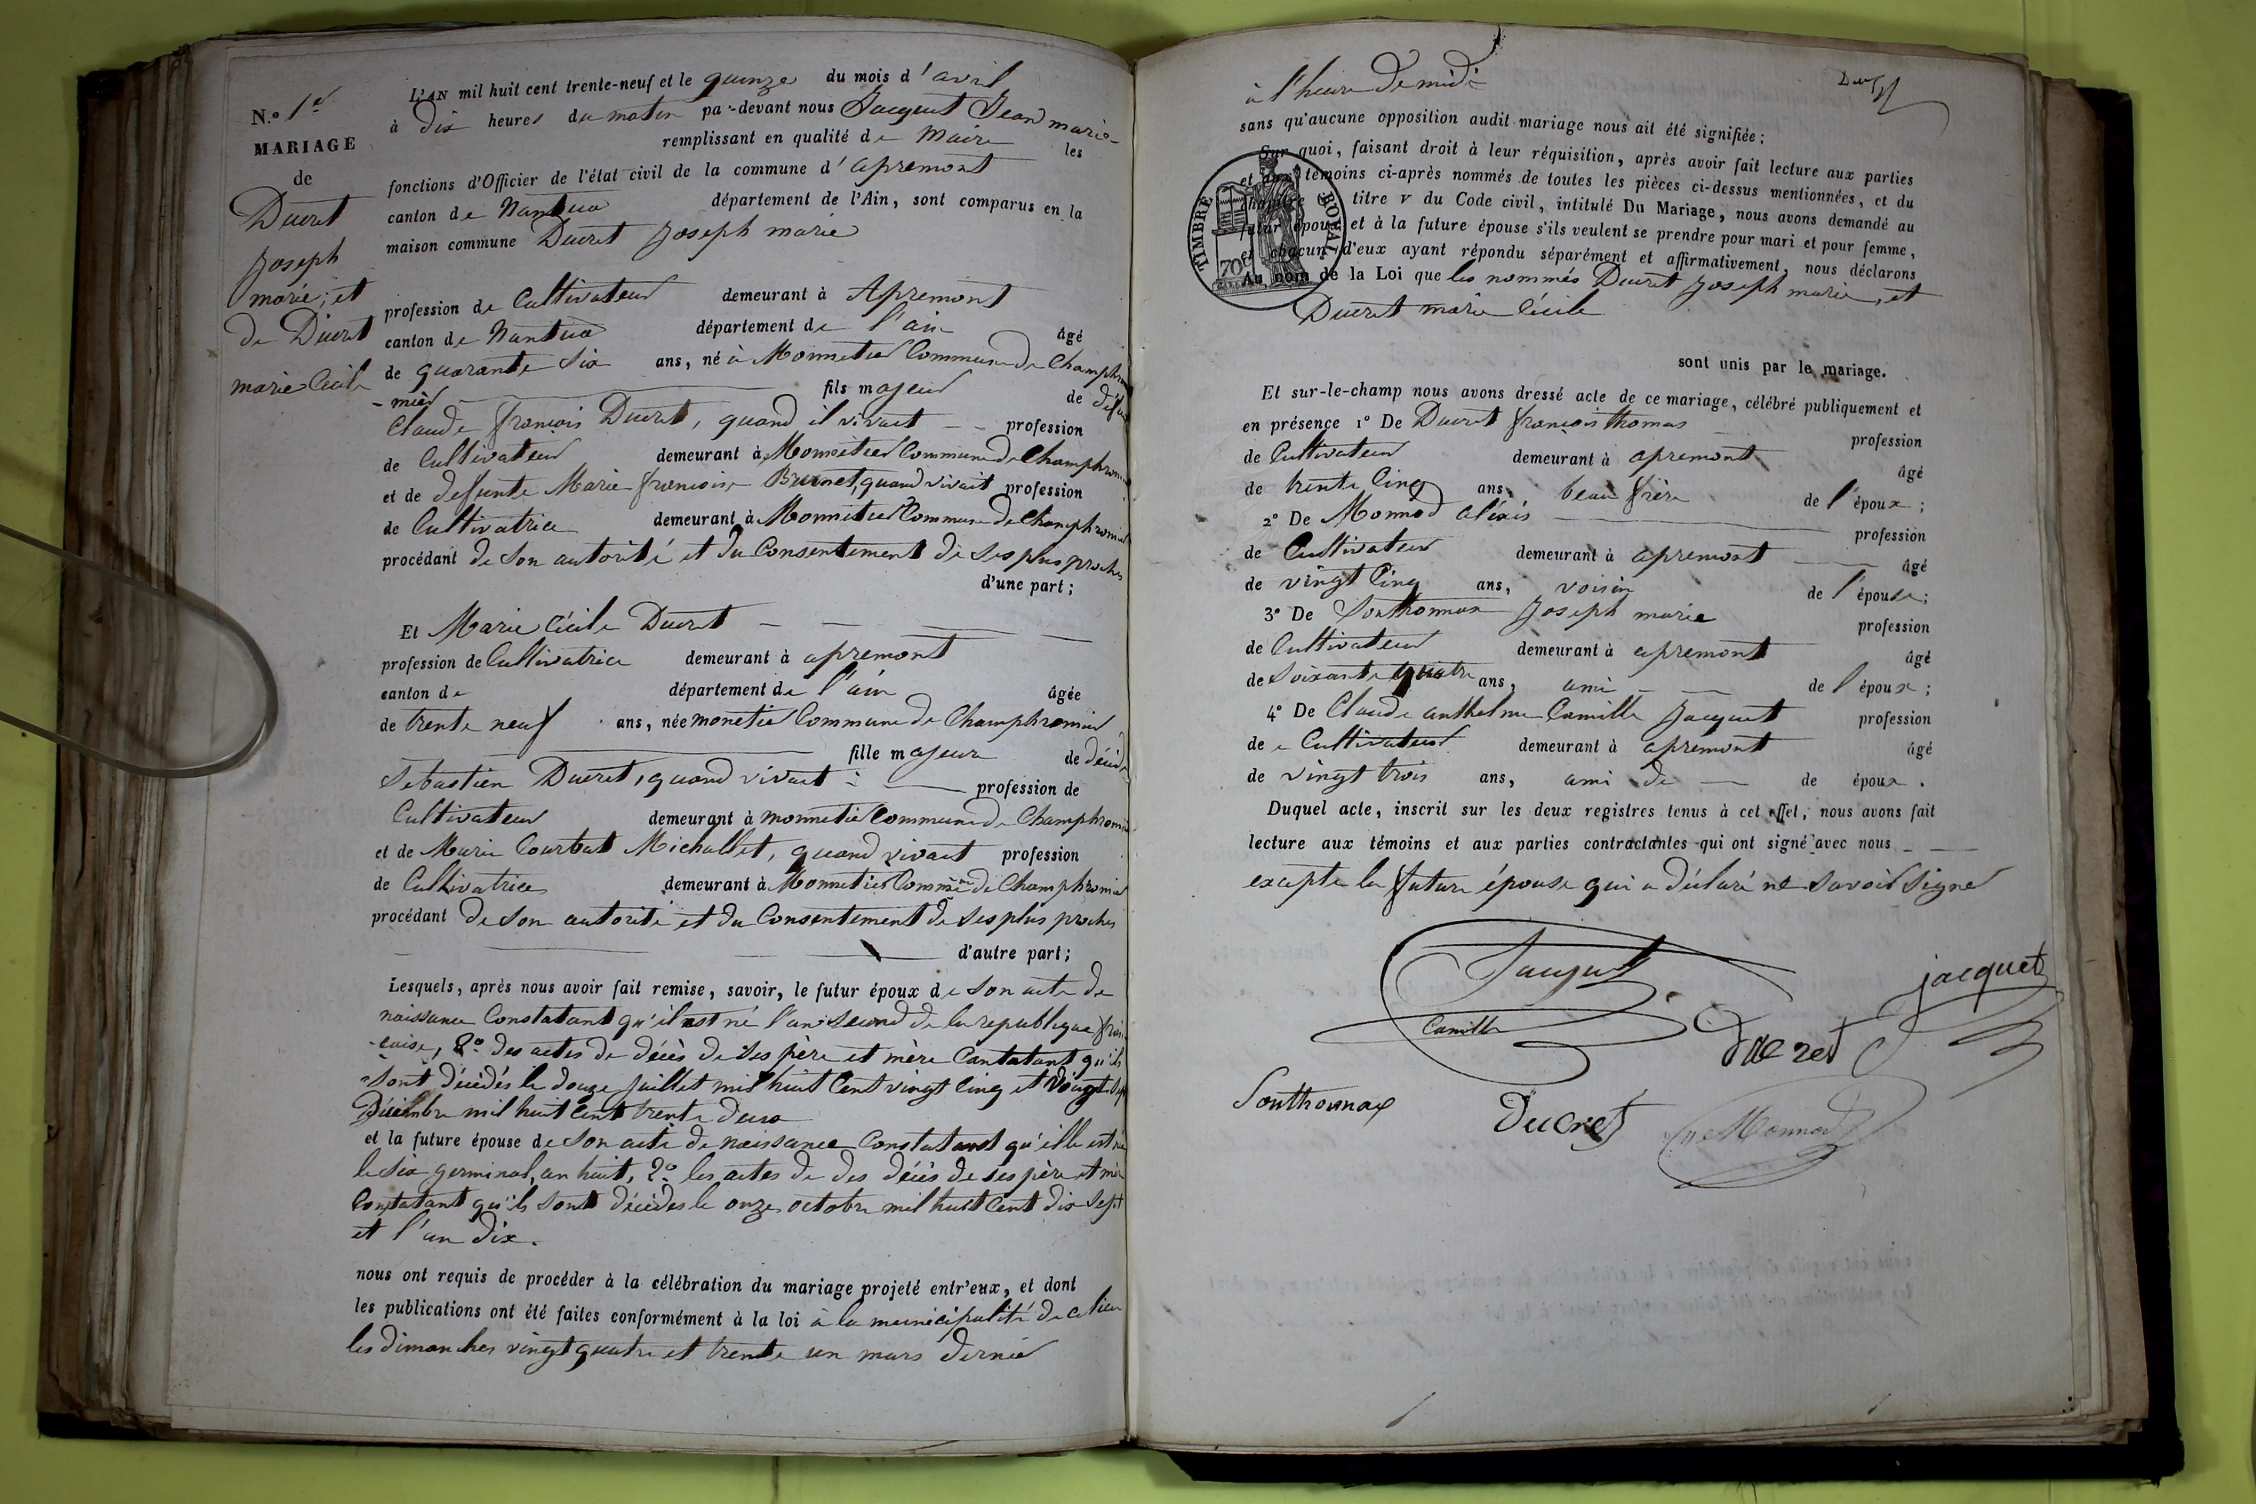 N.o 1er
MARIAGE
de
Ducret
Joseph
marie; et
de Ducret
marie Cécile
L'AN mil huit cent trente-neuf et le quinze du mois d'avril
à dix heures du matin par-devant nous Jacquet Jean marie
remplissant en qualité de Maire les
fonctions d'Officier de l'état civil de la commune d'apremont
canton de Nantua département de l'Ain, sont comparus en la
maison commune Ducret Joseph marie
profession de Cultivateur demeurant à Apremont
canton de Nantua département de l'ain âgé
de quarante six ans, né à Monnetier Commune de Champfro
-mier fils majeur de défunt
Claude françois Ducret, quand il vivait profession
de Cultivateur demeurant à Monnetier Commune de Champhromier
et de defunte Marie françoise Brunet, quand vivait profession
de Cultivatrice demeurant à Monnetier Commune de Champhromier
procédant de son autorité et du Consentement de ses plus proches
d'une part;
Et Marie Cécile Ducret
profession de Cultivatrice demeurant à apremont
canton de département de l'ain âgée
de trente neuf ans, née monetier Commune de Champhromier
fille majeure de
Sebastien Ducret, quand vivait profession de
Cultivateur demeurant à monnetier Commune de Champhromier
et de Marie Courbat Michallet, quand vivait profession
de Cultivatrice demeurant à Monnetier Commune de Champhromier
procédant de son autorité et du Consentement de ses plus proches
d'autre part;
Lesquels, après nous avoir fait remise, savoir, le futur époux de son acte de
naissance Constatant qu'il est né l'an second de la republique fran
-caise, 2o des actes de décès de ses père et mère Contatant qu'ils
sont décédés le douze juillet mil huit Cent vingt cinq et vingt sept
Décembre mil huit cent trente deux
et la future épouse de son acte de naissance Constatant qu'elle est née
le six germinal, an huit, 2o les actes de des décès de ses père et mère
Constatant qu'ils sont décédés le onze octobre mil huit Cent dix sept
et l'an dix.
nous ont requis de procéder à la célébration du mariage projeté entr'eux, et dont
les publications ont été faites conformément à la loi à la municipalité de ce lieu
les dimanches vingt quatre et trente un mars dernier
à l'heure de midi
sans qu'aucune opposition audit mariage nous ait été signifiée;
Sur quoi, faisant droit à leur réquisition, après avoir fait lecture aux parties
et aux témoins ci-après nommés de toutes les pièces ci-dessus mentionnées, et du
chapitre titre v du Code civil, intitulé Du Mariage, nous avons demandé au
futur époux et à la future épouse s'ils veulent se prendre pour mari et pour femme,
et chacun d'eux ayant répondu séparément et affirmativement, nous déclarons
Au nom de la Loi que les nommés Ducret Joseph marie, et
Ducret marie Cécile
TIMBRE ROYAL
70c
sont unis par le mariage.
Et sur-le-champ nous avons dressé acte de ce mariage, célébré publiquement et
en présence 1o De Ducret françois thomas profession
de Cultivateur demeurant à apremont âgé
de trente Cinq ans, beau frère de l'époux;
2o De Monnod aléxis profession
de Cultivateur demeurant à apremont âgé
de vingt Cinq ans, voisin de l'épouse;
3o De Southonnax Joseph marie profession
de Cultivateur demeurant à apremont âgé
de soixante quatre ans, ami de l'époux;
4o De Claude anthelme Camille Jacquet profession
de Cultivateur demeurant à apremont âgé
de vingt trois ans, ami de de époux.
Duquel acte, inscrit sur les deux registres tenus à cet effet, nous avons fait
lecture aux témoins et aux parties contractantes qui ont signé avec nous
excepte la future épouse qui a déclaré ne savoir signer
Jacquet
Camille
jacquet
ducret
Southonnax
Ducret
Monnod